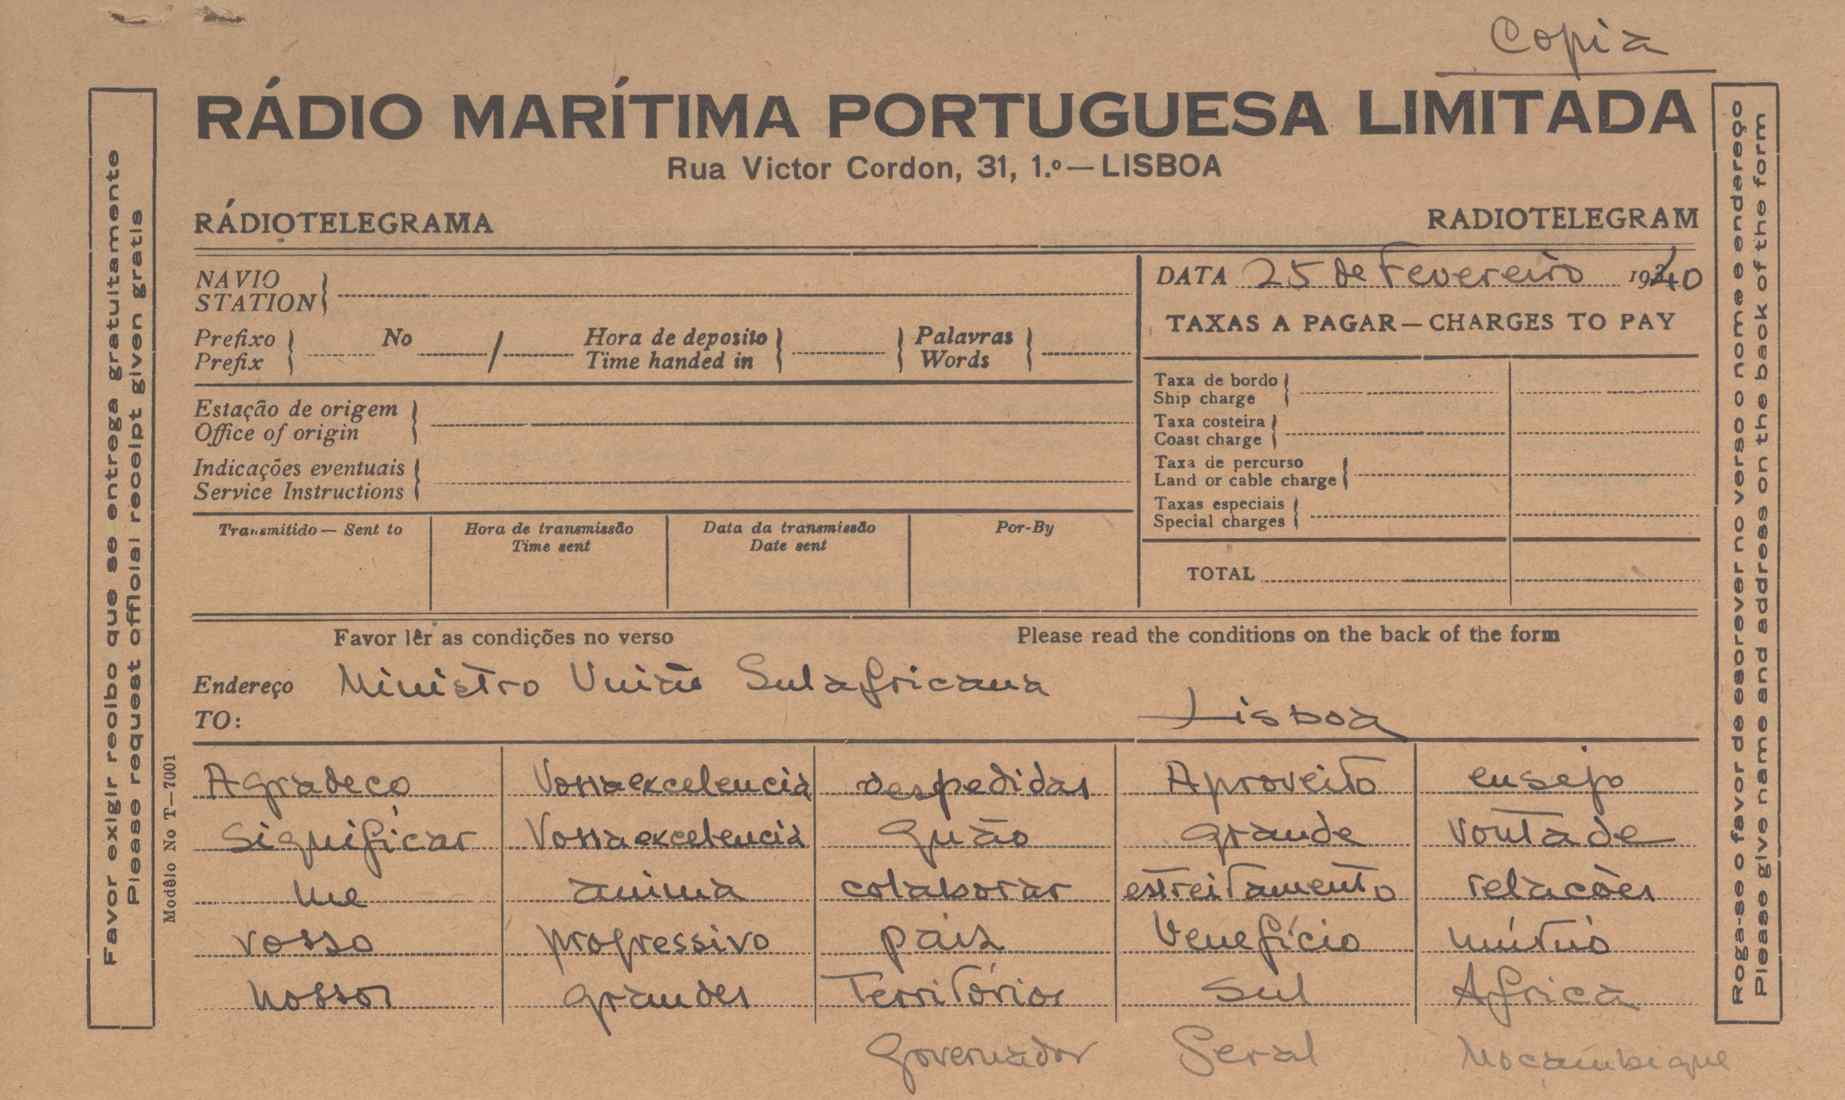 Copia
RÁDIO MARÍTIMA PORTUGUESA LIMITADA
Rua Victor Cordon, 31, 1.º — LISBOA
RÁDIOTELEGRAMA RADIOTELEGRAM
NAVIO
STATION
DATA 25 de Fevereiro 1940
Prefixo No / Hora de deposito Palavras
Prefix Time handed in Words
TAXAS A PAGAR — CHARGES TO PAY
Estação de origem
Office of origin
Indicações eventuais
Service Instructions
Taxa de bordo
Ship charge
Taxa costeira
Coast charge
Taxa de percurso
Land or cable charge
Taxas especiais
Special charges
TOTAL
Transmitido — Sent to Hora de transmissão Data da transmissão Por-By
Time sent Date sent
Favor lêr as condições no verso Please read the conditions on the back of the form
Endereço Ministro União Sulafricana
TO: Lisboa
Agradeço Vossaexcelencia despedidas Aproveito ensejo
significar Vossaexcelencia quão grande vontade
me anima colaborar estreitamento relacões
vosso progressivo pais benefício mútuo
nossos grandes Territórios Sul Africa
Governador Geral Moçambique
Favor exigir recibo que se entrega gratuitamente
Please request official receipt given gratis
Modêlo No T—7001
Roga-se o favor de escrever no verso o nome e endereço
Please give name and address on the back of the form